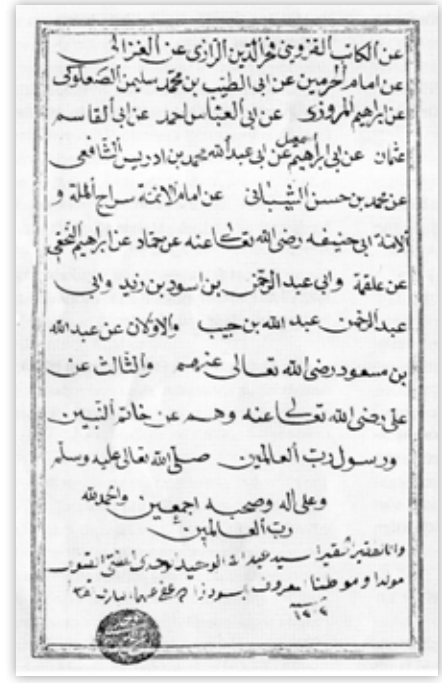 عن الكاتب القزوينى فخر الدين الرازى عن الغزالى
عن امام الحرمين عن ابى الطيب بن محمد سليمن الصعلوكى
عن ابراهيم المروزى عن ابى العباس احمد عن ابى القاسم
عثمان عن ابى ابرهيم اسمعيل عن ابى عبد الله محمد بن ادريس الشافعى
عن محمد بن حسن الشيبانى عن امام الائمة سراج الملة و
الامة ابى حنيفه رضى الله تعالى عنه عن حماد عن ابراهيم النخعى
عن علقمة وابى عبد الرحمن بن اسود بن زيد وابى
عبد الرحمن عبد الله بن حبيب والاولان عن عبد الله
بن مسعود رضى الله تعالى عنهم والثالث عن
على رضى الله تعالى عنه وهم عن خاتم النبين
ورسول رب العالمين صلى الله تعالى عليه وسلم
وعلى اله وصحبه اجمعين والحمد لله
رب العالمين
وانا الفقير الحقير السيد عبد الله الوحيد
مولدا وموطنا المعروف